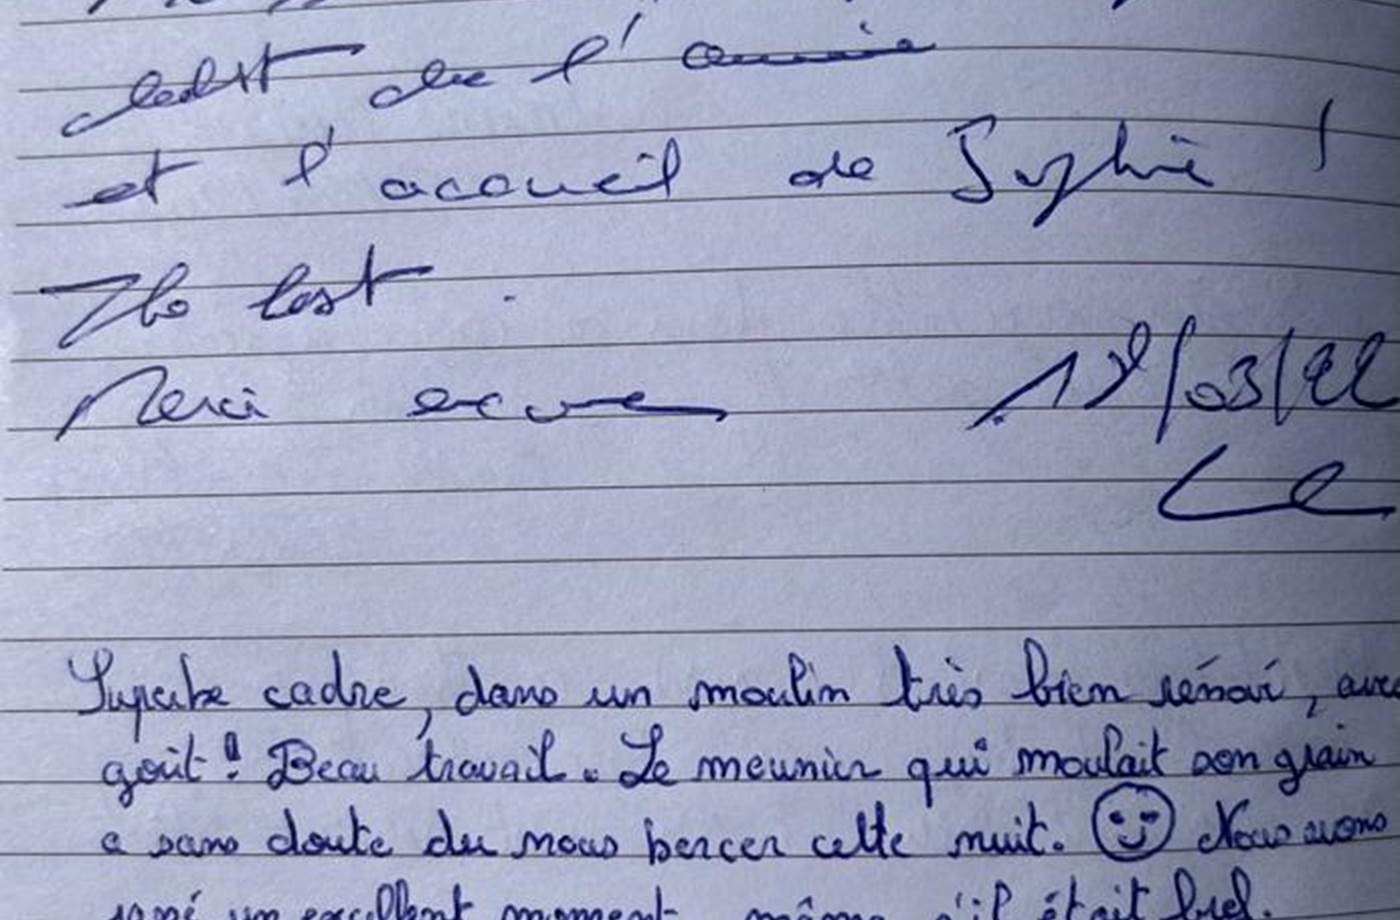 de l'
et l'accueil de Sophie !
The best.
Merci encore 18/03/22
Superbe cadre, dans un moulin très bien rénové, avec
goût! Beau travail. Le meunier qui moulait son grain
a sans doute du nous bercer cette nuit. Nous avons
un excellent moment, même s'il était bref.